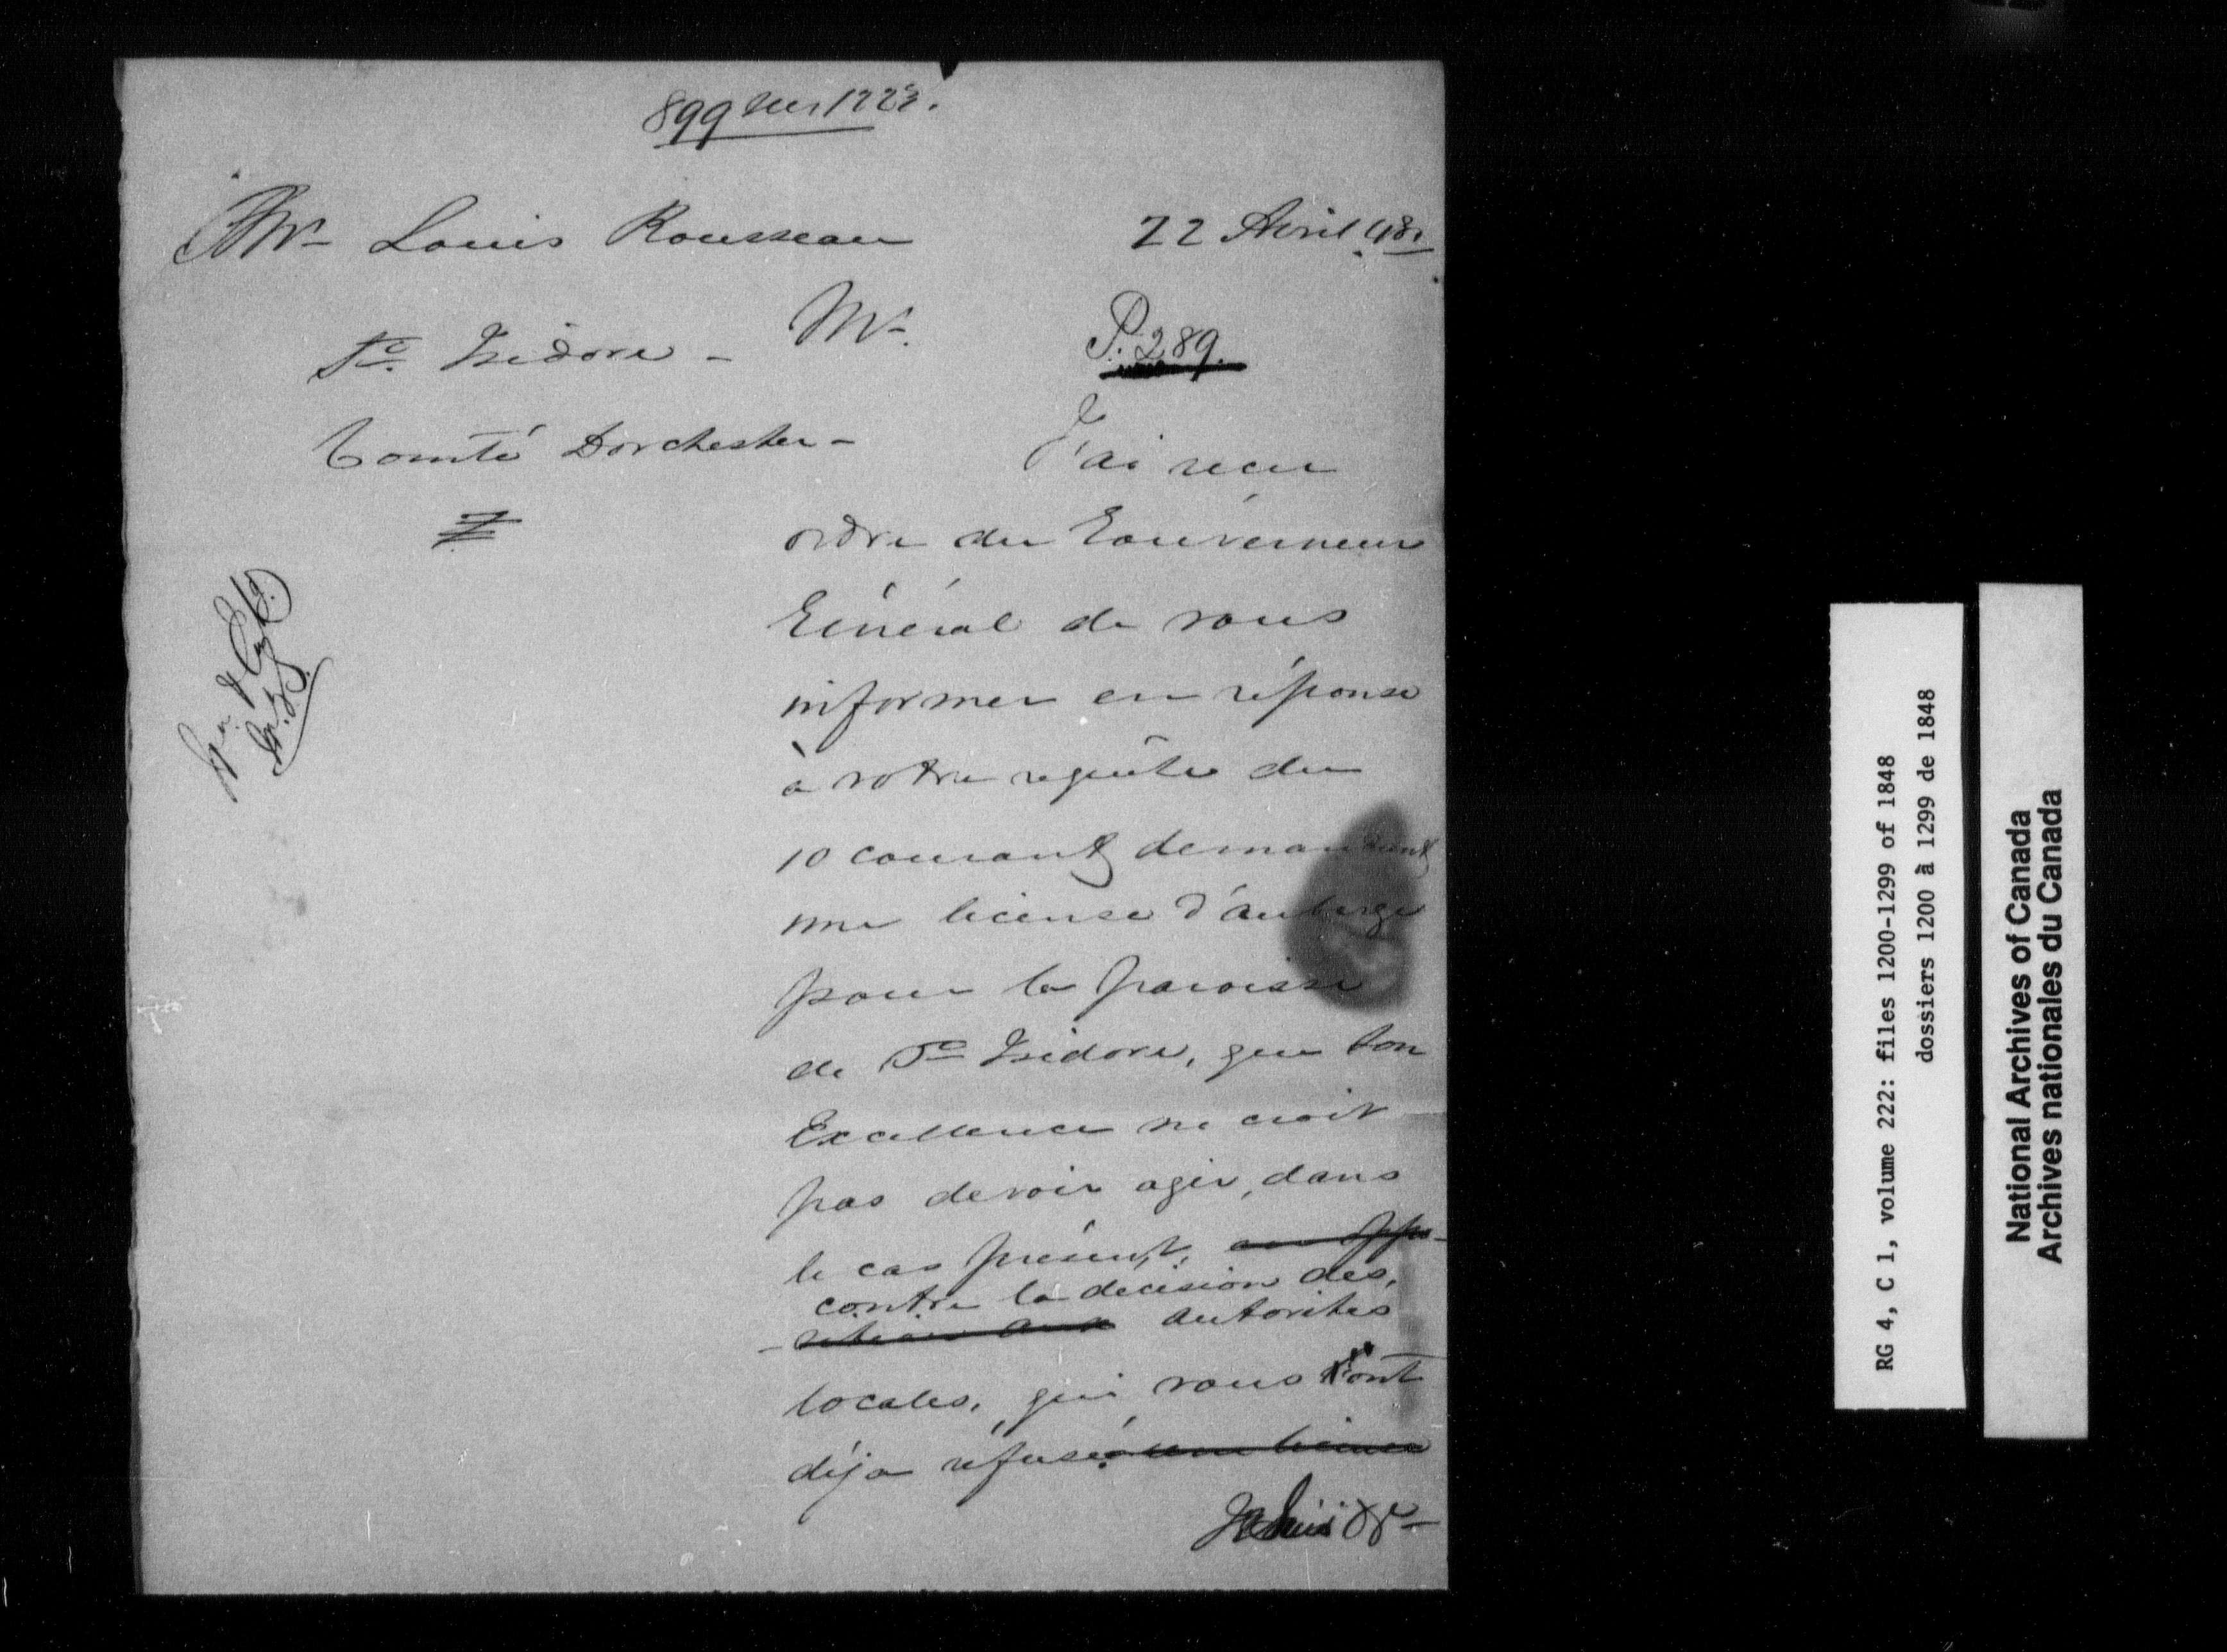 899
Mr Louis Rousseau
22 Avril 48.
Mr.
P. 289.
St. Isidore -
Comté Dorchester -
J'ai recu
ordre du Gouverneur
Général de vous
informer en réponse
à votre requête du
10 courant demandant
une license d'auberge
pour la paroisse
de St Isidore, que Son
Excellence ne croit
pas devoir agir, dans
le cas présent,
contre la decision des
autorités
locales, qui vous l'ont
déja réfusé une license
J'ai &c -
RG 4, C 1, volume 222: files 1200-1299 of 1848
dossiers 1200 à 1299 de 1848
National Archives of Canada
Archives nationales du Canada